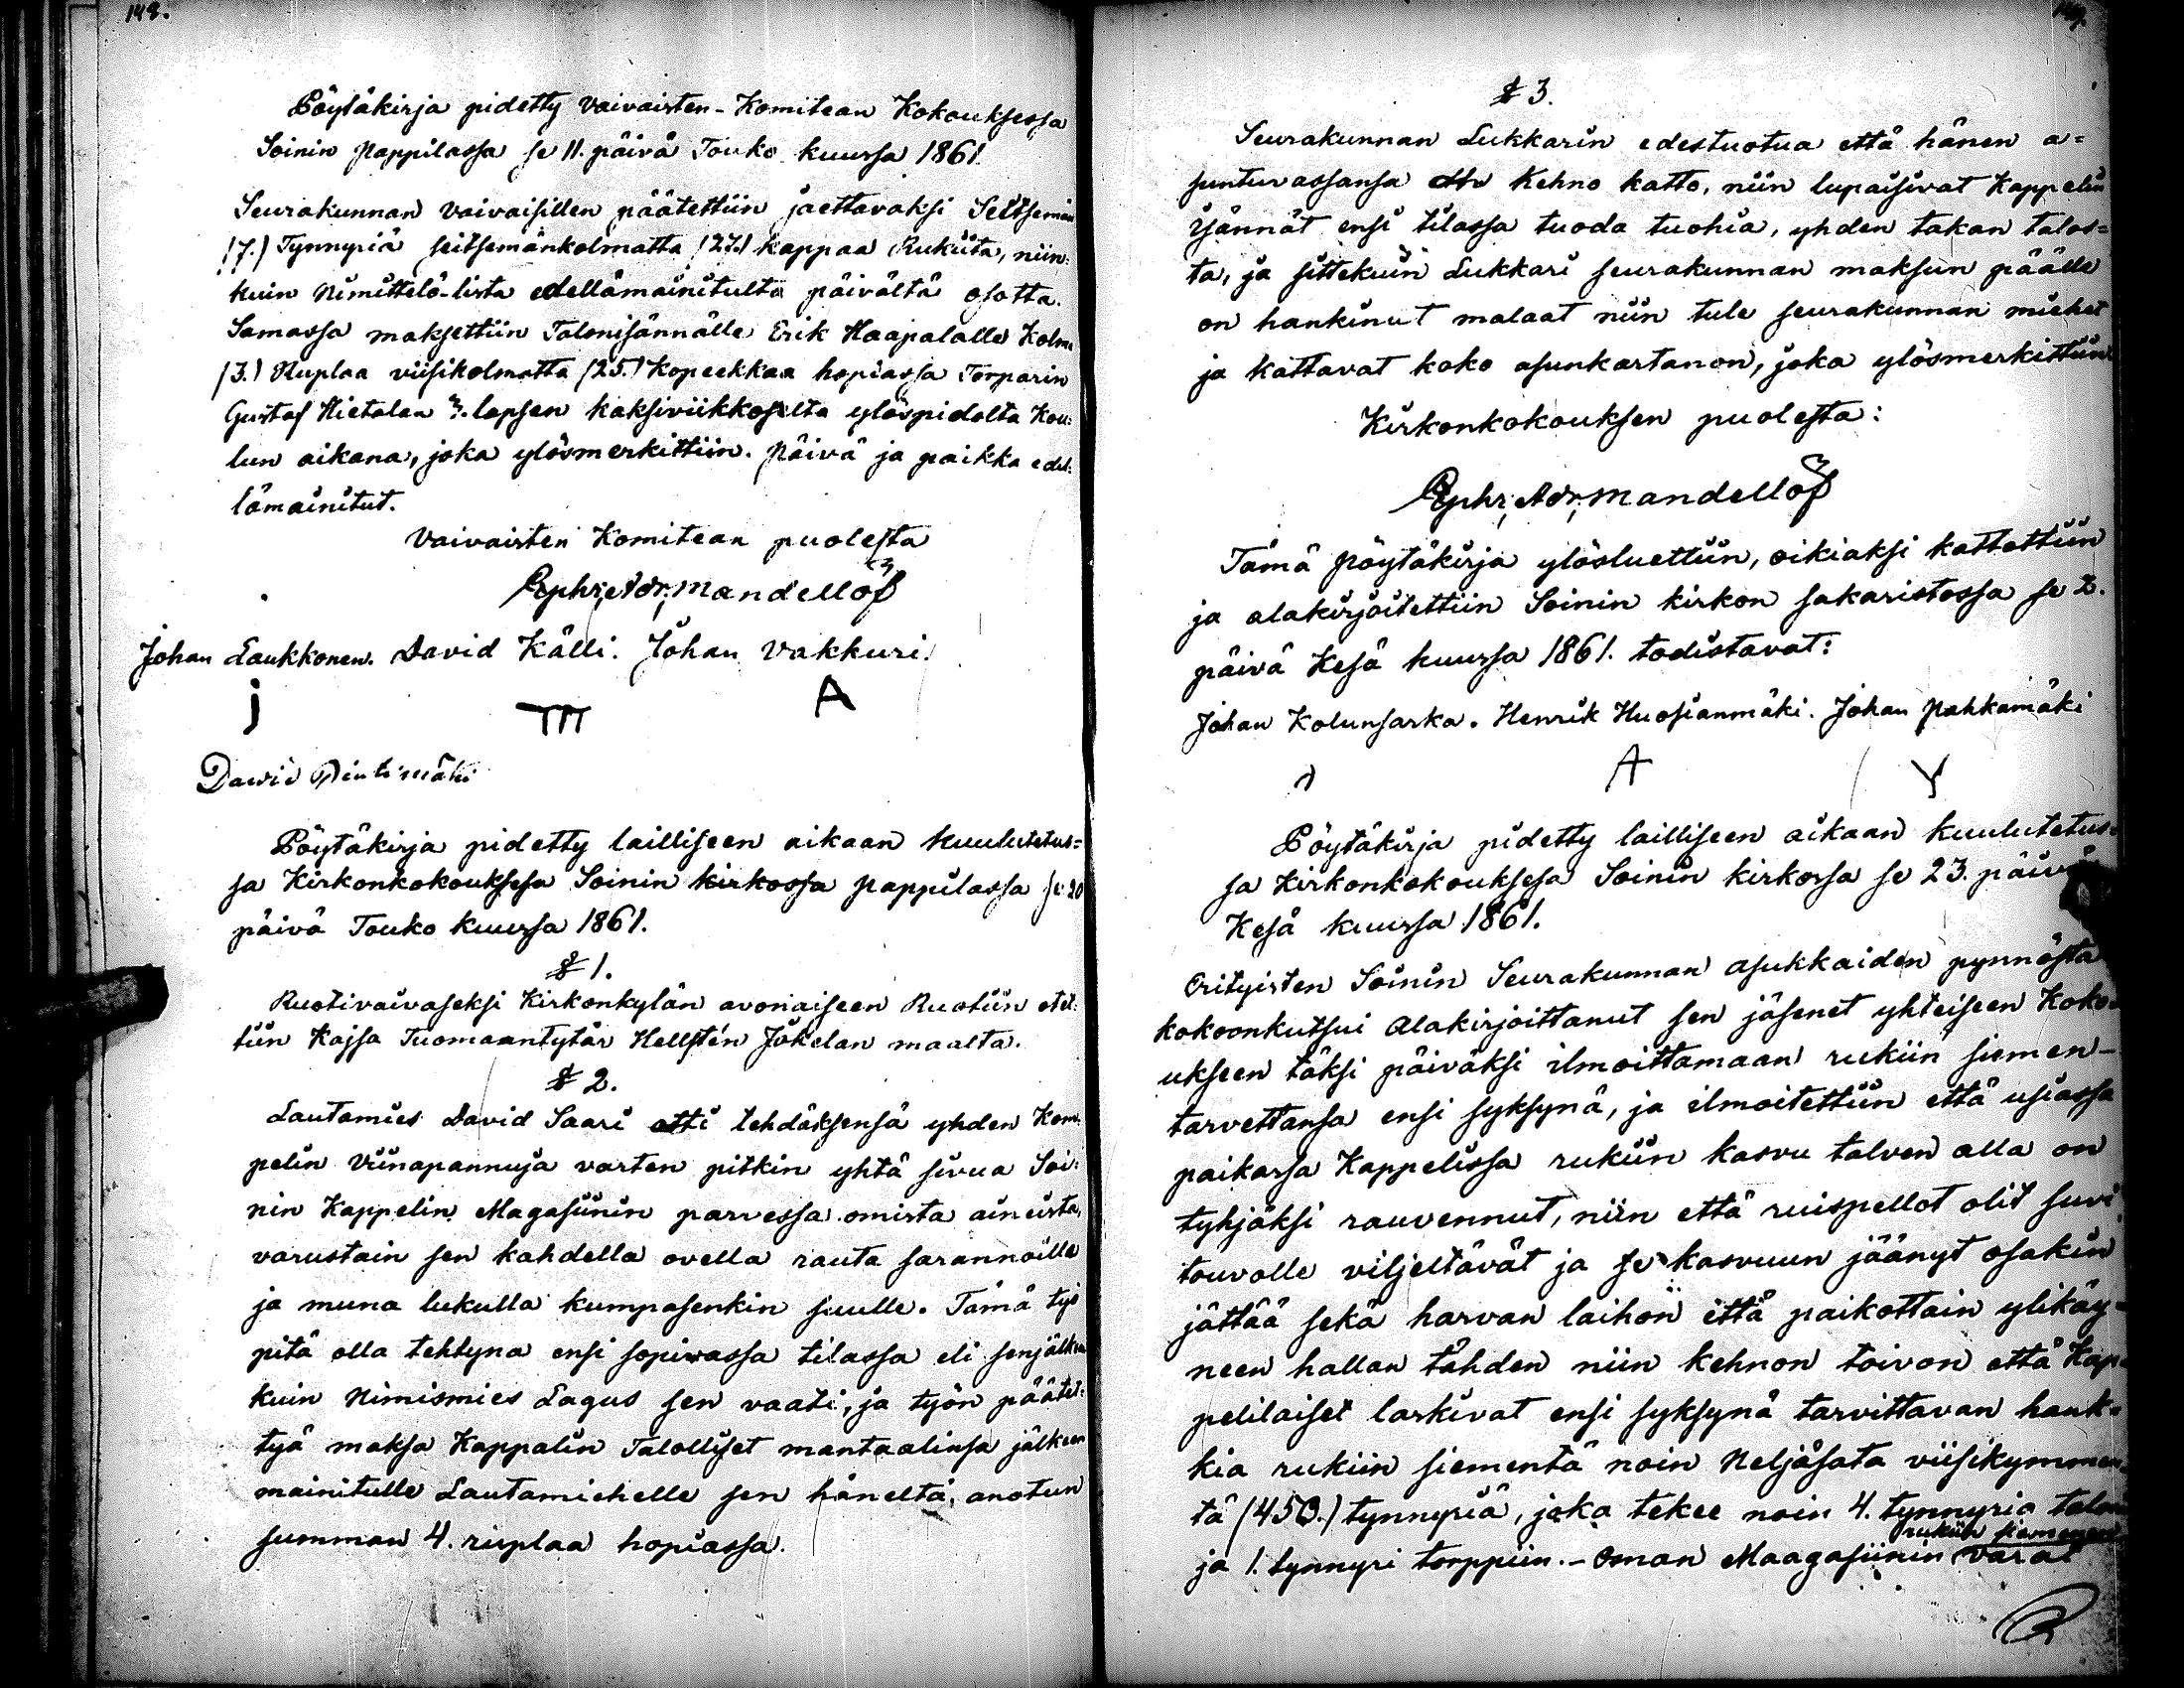 148.
Pöytäkirja pidetty Vaivaisten-Komitean Kokouksessa
Soinin pappilassa se 11. päivä Touko kuussa 1861.
Seurakunnan Vaivaisillen päätettiin jaettavaksi Seitsemän
(7.) Tynnyriä seitsemänkolmatta (27.) kappaa Rukiita, niin-
kuin Nimittelö-lista edellämainitulta päivältä osotta.
Samassa maksettiin Talonisännälle Erik Haapalalle Kolme
(3.) Ruplaa viisikolmatta (25.) Kopeekkaa hopiassa Torparin
Gustaf Hietalan 3. lapsen kaksiviikkoselta ylöspidolta Kou-
lun aikana, joka ylösmerkittiin. Päivä ja paikka edel-
lämainitut.
Vaivaisten Komitean puolesta
Ephr. Adr. Mandellöf
Johan Laukkonen. David Källi. Johan Vakkuri.
J A
David Pentimäki
Pöytäkirja pidetty lailliseen aikaan kuulutetus=
sa Kirkonkokouksesa Soinin kirkossa pappilassa se 20
päivä Touko kuussa 1861.
§ 1.
Ruotivaivaseksi Kirkonkylän avonaiseen Ruotiin otet-
tiin Kajsa Tuomaantytär Hellstén Jokelan maalta.
§ 2.
Lautamies David Saari otti tehdäksensä yhden Kom-
pelin Viinapannuja varten pitkin yhtä sivua Soi-
nin Kappelin Magasiinin parvessa omista aineista,
varustain sen kahdella ovella rauta sarannoilla
ja muna lukulla kumpasenkin suulle. Tämä työ
pitä olla tehtynä ensi sopivassa tilassa eli senjälken
kuin Nimismies Lagus sen vaati, ja työn päätet-
tyä maksa Kappalin Talolliset mantaalinsa jälkeen
mainitulle Lautamiehelle sen häneltä, anotun
summan 4. ruplaa hopiassa.
149.
§ 3.
Seurakunnan Lukkarin edestuotua että hänen a=
suntuvassansa Kehno katto, niin lupaisivat Kappelin
Isännät ensi tilassa tuoda tuohia, yhden takan talos=
ta, ja sittekuin Lukkari seurakunnan maksun päälle
on hankinut malaat niin tule seurakunnan miehet
ja kattavat koko asunkartanon, joka ylösmerkittiin
Kirkonkokouksen puolesta:
Ephr. Adr. Mandellöf
Tämä pöytäkirja ylösluettiin, oikiaksi kattottiin
ja alakirjoitettiin Soinin kirkon sakaristossa se 2.
päivä Kesä kuussa 1861. todistavat:
Johan Kolunsarka. Henrik Huosianmäki. Johan Pahkamäki
A Y
Pöytäkirja pidetty lailliseen aikaan kuulutetus=
sa Kirkonkokouksesa Soinin kirkossa se 23. päivä
Kesä kuussa 1861.
Erityisten Soinin Seurakunnan asukkaiden pynnöstä
kokoonkutsui Alakirjoittanut sen jäsenet yhteiseen Koko=
ukseen täksi päiväksi ilmoittamaan rukiin siemen-
tarvettansa ensi syksynä, ja ilmoitettiin että usiassa
paikassa Kappelissa rukiin kasvu talven alla on
tyhjäksi rauvennut, niin että ruispellot olit suvi
touvolle viljeltävät ja se kasvuun jäänyt osakin
jättää sekä harvan laihon että paikottain ylikäy=
neen hallan tähden niin kehnon toivon että Kap=
pelilaiset laskivat ensi syksynä tarvittavan hank=
kia rukiin siementä noin Neljäsata viisikymmen-
tä (450.) tynnyriä, joka tekee noin 4. tynnyriä taloon
ja 1. tynnyri torppiin. - Oman Maagasiinin rukiin siemenen varat